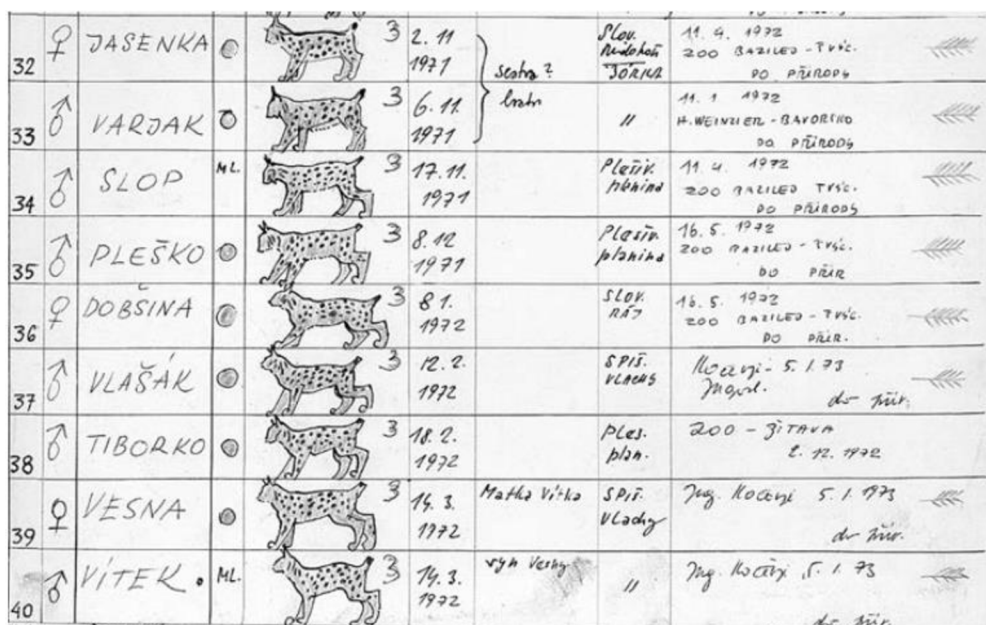 32 ♀ JASENKA 3 2. 11 1971 sestra? Slov. Rudohoří JÓRICA 11. 4. 1972
ZOO BAZILEJ - ŠVÝC.
DO PŘÍRODY
33 ♂ VARJAK 3 6. 11. 1971 bratr 〃 11. 1 1972
H. WEINZIER - BAVORSKO
DO PŘÍRODY
34 ♂ SLOP ML. 3 17. 11. 1971 Plešiv. planina 11. 4. 1972
ZOO BAZILEJ ŠVÝC.
DO PŘÍRODY
35 ♂ PLEŠKO 3 8. 12 1971 Plešiv. planina 16. 5. 1972
ZOO BAZILEJ - ŠVÝC.
DO PŘÍR
36 ♀ DOBŠINA 3 8 1. 1972 SLOV. RÁJ 16. 5. 1972
ZOO BAZILEJ - ŠVÝC.
DO PŘÍR.
37 ♂ VLAŠÁK 3 12. 2. 1972 SPIŠ. VLACHY 5. 1. 73
do přír.
38 ♂ TIBORKO 3 18. 2. 1972 Ples. plan. ZOO - ŽITAVA
2. 12. 1972
39 ♀ VESNA 3 14. 3. 1972 Matka Vítka SPIŠ. Vlachy Ing. 5. 1. 1973
do přír.
40 ♂ VÍTEK. ML. 3 14. 3. 1972 syn Vesny 〃 Ing. 5. 1. 73
do přír.